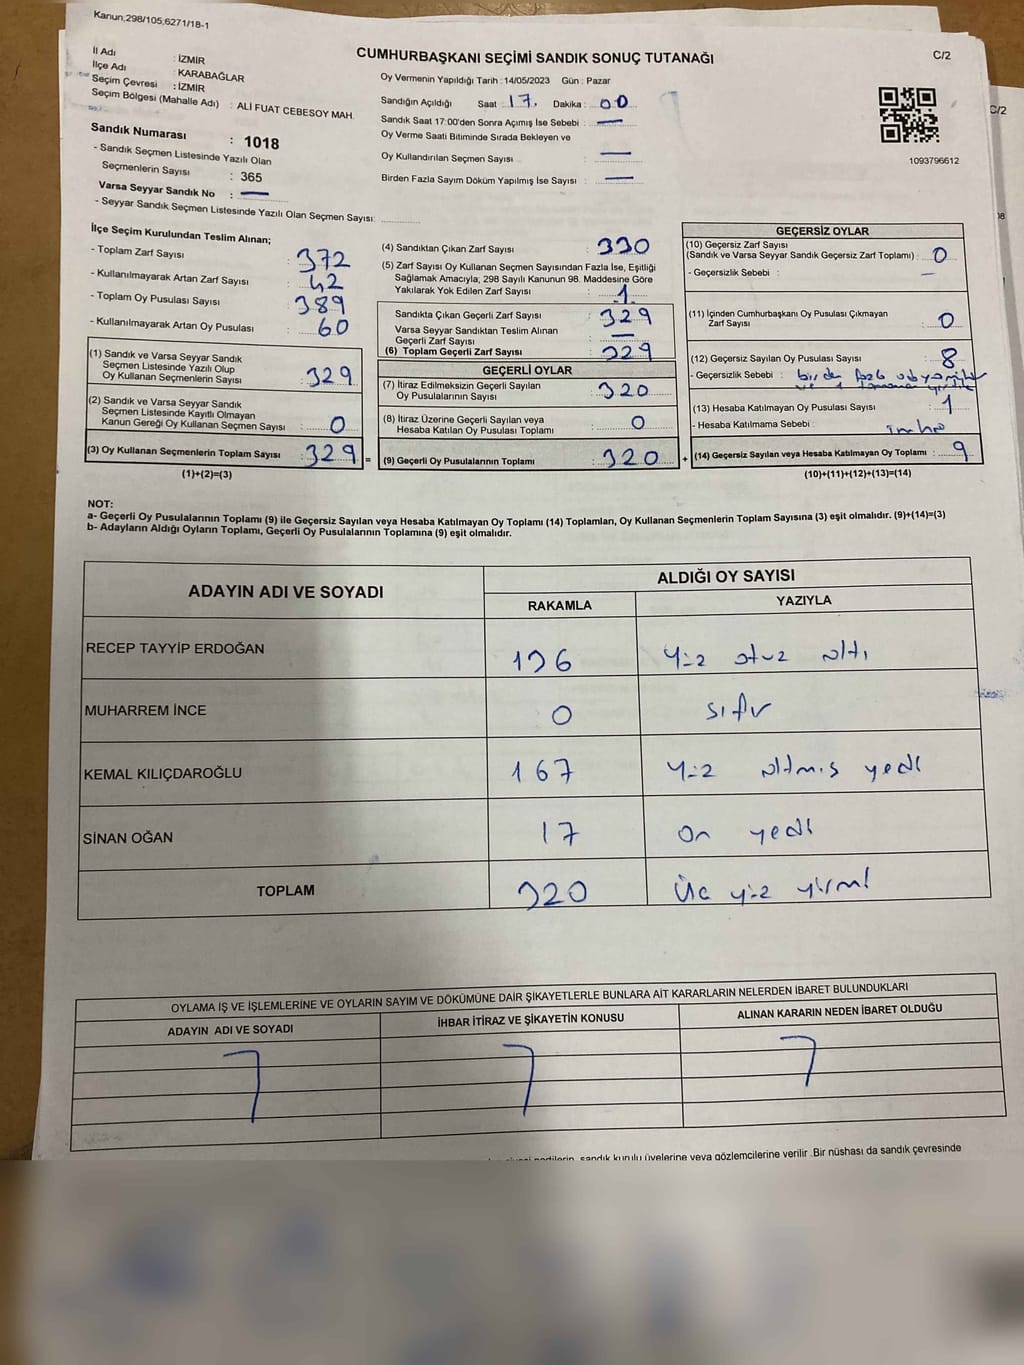 Kanun;298/105,6271/18-1
C/2
CUMHURBAŞKANI SEÇİMİ SANDIK SONUÇ TUTANAĞI
İl Adı : İZMİR
İlçe Adı : KARABAĞLAR
Seçim Çevresi : İZMİR
Seçim Bölgesi (Mahalle Adı) : ALİ FUAT CEBESOY MAH.
Sandık Numarası : 1018
- Sandık Seçmen Listesinde Yazılı Olan
Seçmenlerin Sayısı : 365
Varsa Seyyar Sandık No : —
- Seyyar Sandık Seçmen Listesinde Yazılı Olan Seçmen Sayısı:
Oy Vermenin Yapıldığı Tarih : 14/05/2023 Gün : Pazar
Sandığın Açıldığı Saat : 17. Dakika : 00
Sandık Saat 17:00'den Sonra Açımış İse Sebebi : —
Oy Verme Saati Bitiminde Sırada Bekleyen ve
Oy Kullandırılan Seçmen Sayısı : —
Birden Fazla Sayım Döküm Yapılmış İse Sayısı : —
1093796612
C/2
İlçe Seçim Kurulundan Teslim Alınan;
- Toplam Zarf Sayısı : 372
- Kullanılmayarak Artan Zarf Sayısı : 42
- Toplam Oy Pusulası Sayısı : 389
- Kullanılmayarak Artan Oy Pusulası : 60
(1) Sandık ve Varsa Seyyar Sandık
Seçmen Listesinde Yazılı Olup
Oy Kullanan Seçmenlerin Sayısı : 329
(2) Sandık ve Varsa Seyyar Sandık
Seçmen Listesinde Kayıtlı Olmayan
Kanun Gereği Oy Kullanan Seçmen Sayısı : 0
(3) Oy Kullanan Seçmenlerin Toplam Sayısı : 329 =
(1)+(2)=(3)
(4) Sandıktan Çıkan Zarf Sayısı : 330
(5) Zarf Sayısı Oy Kullanan Seçmen Sayısından Fazla İse, Eşitliği
Sağlamak Amacıyla, 298 Sayılı Kanunun 98. Maddesine Göre
Yakılarak Yok Edilen Zarf Sayısı : 1
Sandıkta Çıkan Geçerli Zarf Sayısı : 329
Varsa Seyyar Sandıktan Teslim Alınan
Geçerli Zarf Sayısı : —
(6) Toplam Geçerli Zarf Sayısı : 329
GEÇERLİ OYLAR
(7) İtiraz Edilmeksizin Geçerli Sayılan
Oy Pusulalarının Sayısı : 320
(8) İtiraz Üzerine Geçerli Sayılan veya
Hesaba Katılan Oy Pusulası Toplamı : 0
(9) Geçerli Oy Pusulalarının Toplamı : 320 +
GEÇERSİZ OYLAR
(10) Geçersiz Zarf Sayısı
(Sandık ve Varsa Seyyar Sandık Geçersiz Zarf Toplamı) : 0
- Geçersizlik Sebebi : —
(11) İçinden Cumhurbaşkanı Oy Pusulası Çıkmayan
Zarf Sayısı : 0
(12) Geçersiz Sayılan Oy Pusulası Sayısı : 8
- Geçersizlik Sebebi : birden fazla
(13) Hesaba Katılmayan Oy Pusulası Sayısı : 1
- Hesaba Katılmama Sebebi : imha
(14) Geçersiz Sayılan veya Hesaba Katılmayan Oy Toplamı : 9
(10)+(11)+(12)+(13)=(14)
NOT:
a- Geçerli Oy Pusulalarının Toplamı (9) ile Geçersiz Sayılan veya Hesaba Katılmayan Oy Toplamı (14) Toplamları, Oy Kullanan Seçmenlerin Toplam Sayısına (3) eşit olmalıdır. (9)+(14)=(3)
b- Adayların Aldığı Oyların Toplamı, Geçerli Oy Pusulalarının Toplamına (9) eşit olmalıdır.
ADAYIN ADI VE SOYADI
ALDIĞI OY SAYISI
RAKAMLA YAZIYLA
RECEP TAYYİP ERDOĞAN 136 Yüz otuz altı
MUHARREM İNCE 0 sıfır
KEMAL KILIÇDAROĞLU 167 Yüz altmış yedi
SİNAN OĞAN 17 On yedi
TOPLAM 320 Üç yüz yirmi
OYLAMA İŞ VE İŞLEMLERİNE VE OYLARIN SAYIM VE DÖKÜMÜNE DAİR ŞİKAYETLERLE BUNLARA AİT KARARLARIN NELERDEN İBARET BULUNDUKLARI
ADAYIN ADI VE SOYADI İHBAR İTİRAZ VE ŞİKAYETİN KONUSU ALINAN KARARIN NEDEN İBARET OLDUĞU
sandık kurulu üyelerine veya gözlemcilerine verilir .Bir nüshası da sandık çevresinde